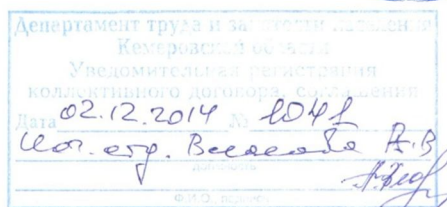 Департамент труда и занятости населения
Кемеровской области
Уведомительная регистрация
коллективного договора, соглашения
Дата 02.12.2014 № 1041
отд. Власова А.В
должность
Ф.И.О.